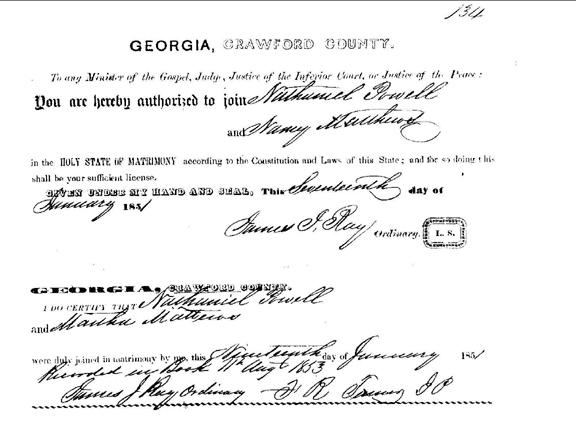 134
GEORGIA, CRAWFORD COUNTY.
To any Minister of the Gospel, Judge, Justice of the Inferior Court, or Justice of the Peace:
You are hereby authorized to join Nathaniel Powell
and Nancy Matthews
in the HOLY STATE OF MATRIMONY according to the Constitution and Laws of this State; and for so doing this
shall be your sufficient license.
GIVEN UNDER MY HAND AND SEAL, This Seventeenth day of
January 1851
James J. Ray Ordinary. L. S.
GEORGIA, CRAWFORD COUNTY.
I DO CERTIFY THAT Nathaniel Powell
and Martha Mathews
were duly joined in matrimony by me, this Nineteenth day of January 1851
Recorded in Book Aug 1853
James J. Ray Ordinary R J P